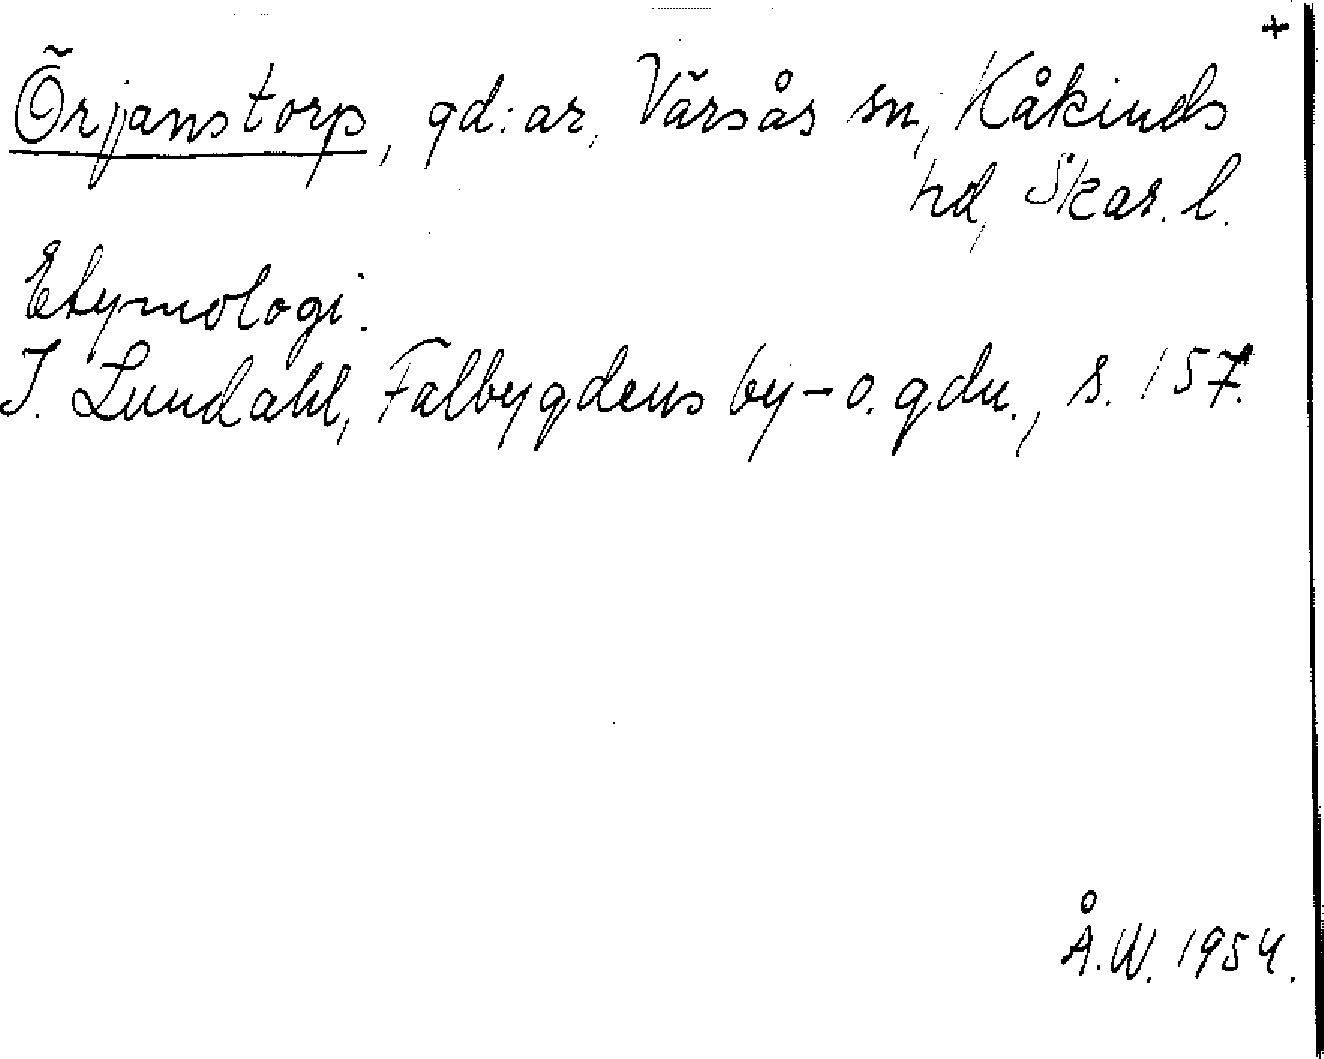 +
Örjanstorp, gd:ar, Värsås sn, Kåkinds
hd, Skar. l.
Etymologi.
I. Lundahl, Falbygdens by- o. gdn., s. 157.
Å.W. 1954.